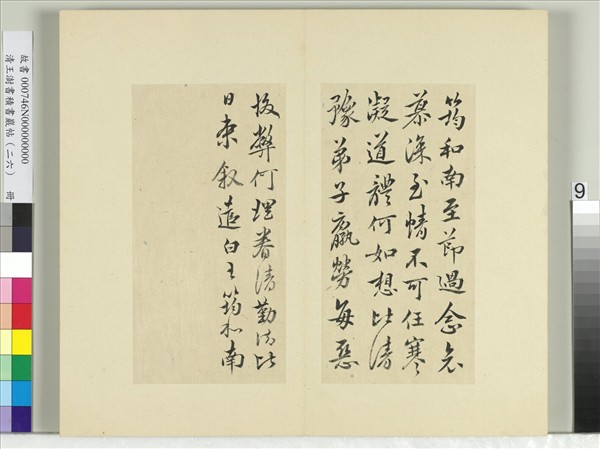 筠和南至節過念
慕深至情不可任寒
凝道體何如想比清
豫弟子羸勞每惡
弊何理眷清勤比
日來敘遣白王筠和南
故書 000746N000000000
清王澍書積書巖帖（二六） 冊
9